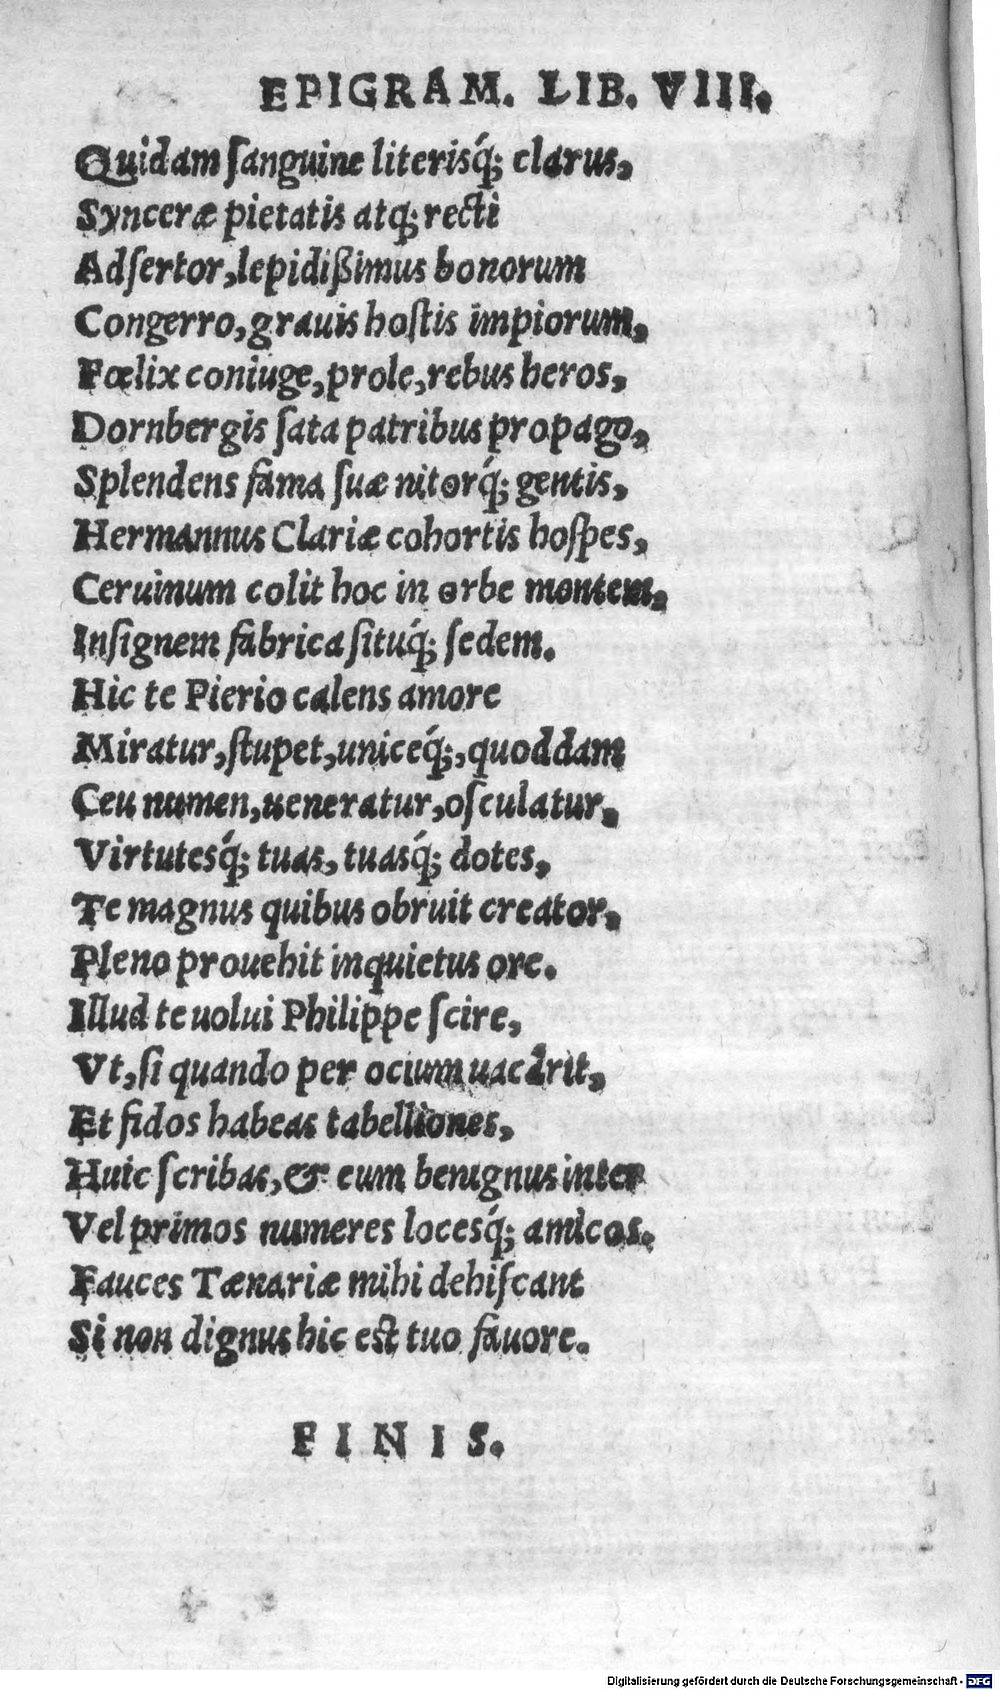 EPIGRAM. LIB. VIII.
Quidam ſanguine literisq́; clarus,
Synceræ pietatis atq; recti
Adſertor, lepidißimus bonorum
Congerro, grauis hoſtis impiorum,
Fœlix coniuge, prole, rebus heros,
Dornbergis ſata patribus propago,
Splendens fama ſuæ nitorq́; gentis,
Hermannus Clariæ cohortis hoſpes,
Ceruinum colit hoc in orbe montem,
Inſignem fabrica ſituq́; ſedem.
Hic te Pierio calens amore
Miratur, ſtupet, uniceq́;, quoddam
Ceu numen, ueneratur, oſculatur,
Virtutesq́; tuas, tuasq́; dotes,
Te magnus quibus obruit creator,
Pleno prouehit inquietus ore.
Illud te uolui Philippe ſcire,
Vt, ſi quando per ocium uacârit,
Et fidos habeas tabelliones,
Huic ſcribas, & eum benignus inter
Vel primos numeres locesq́; amicos.
Fauces Tænariæ mihi dehiſcant
Si non dignus hic eſt tuo fauore.
FINIS.
Digitalisierung gefördert durch die Deutsche Forschungsgemeinschaft - DFG